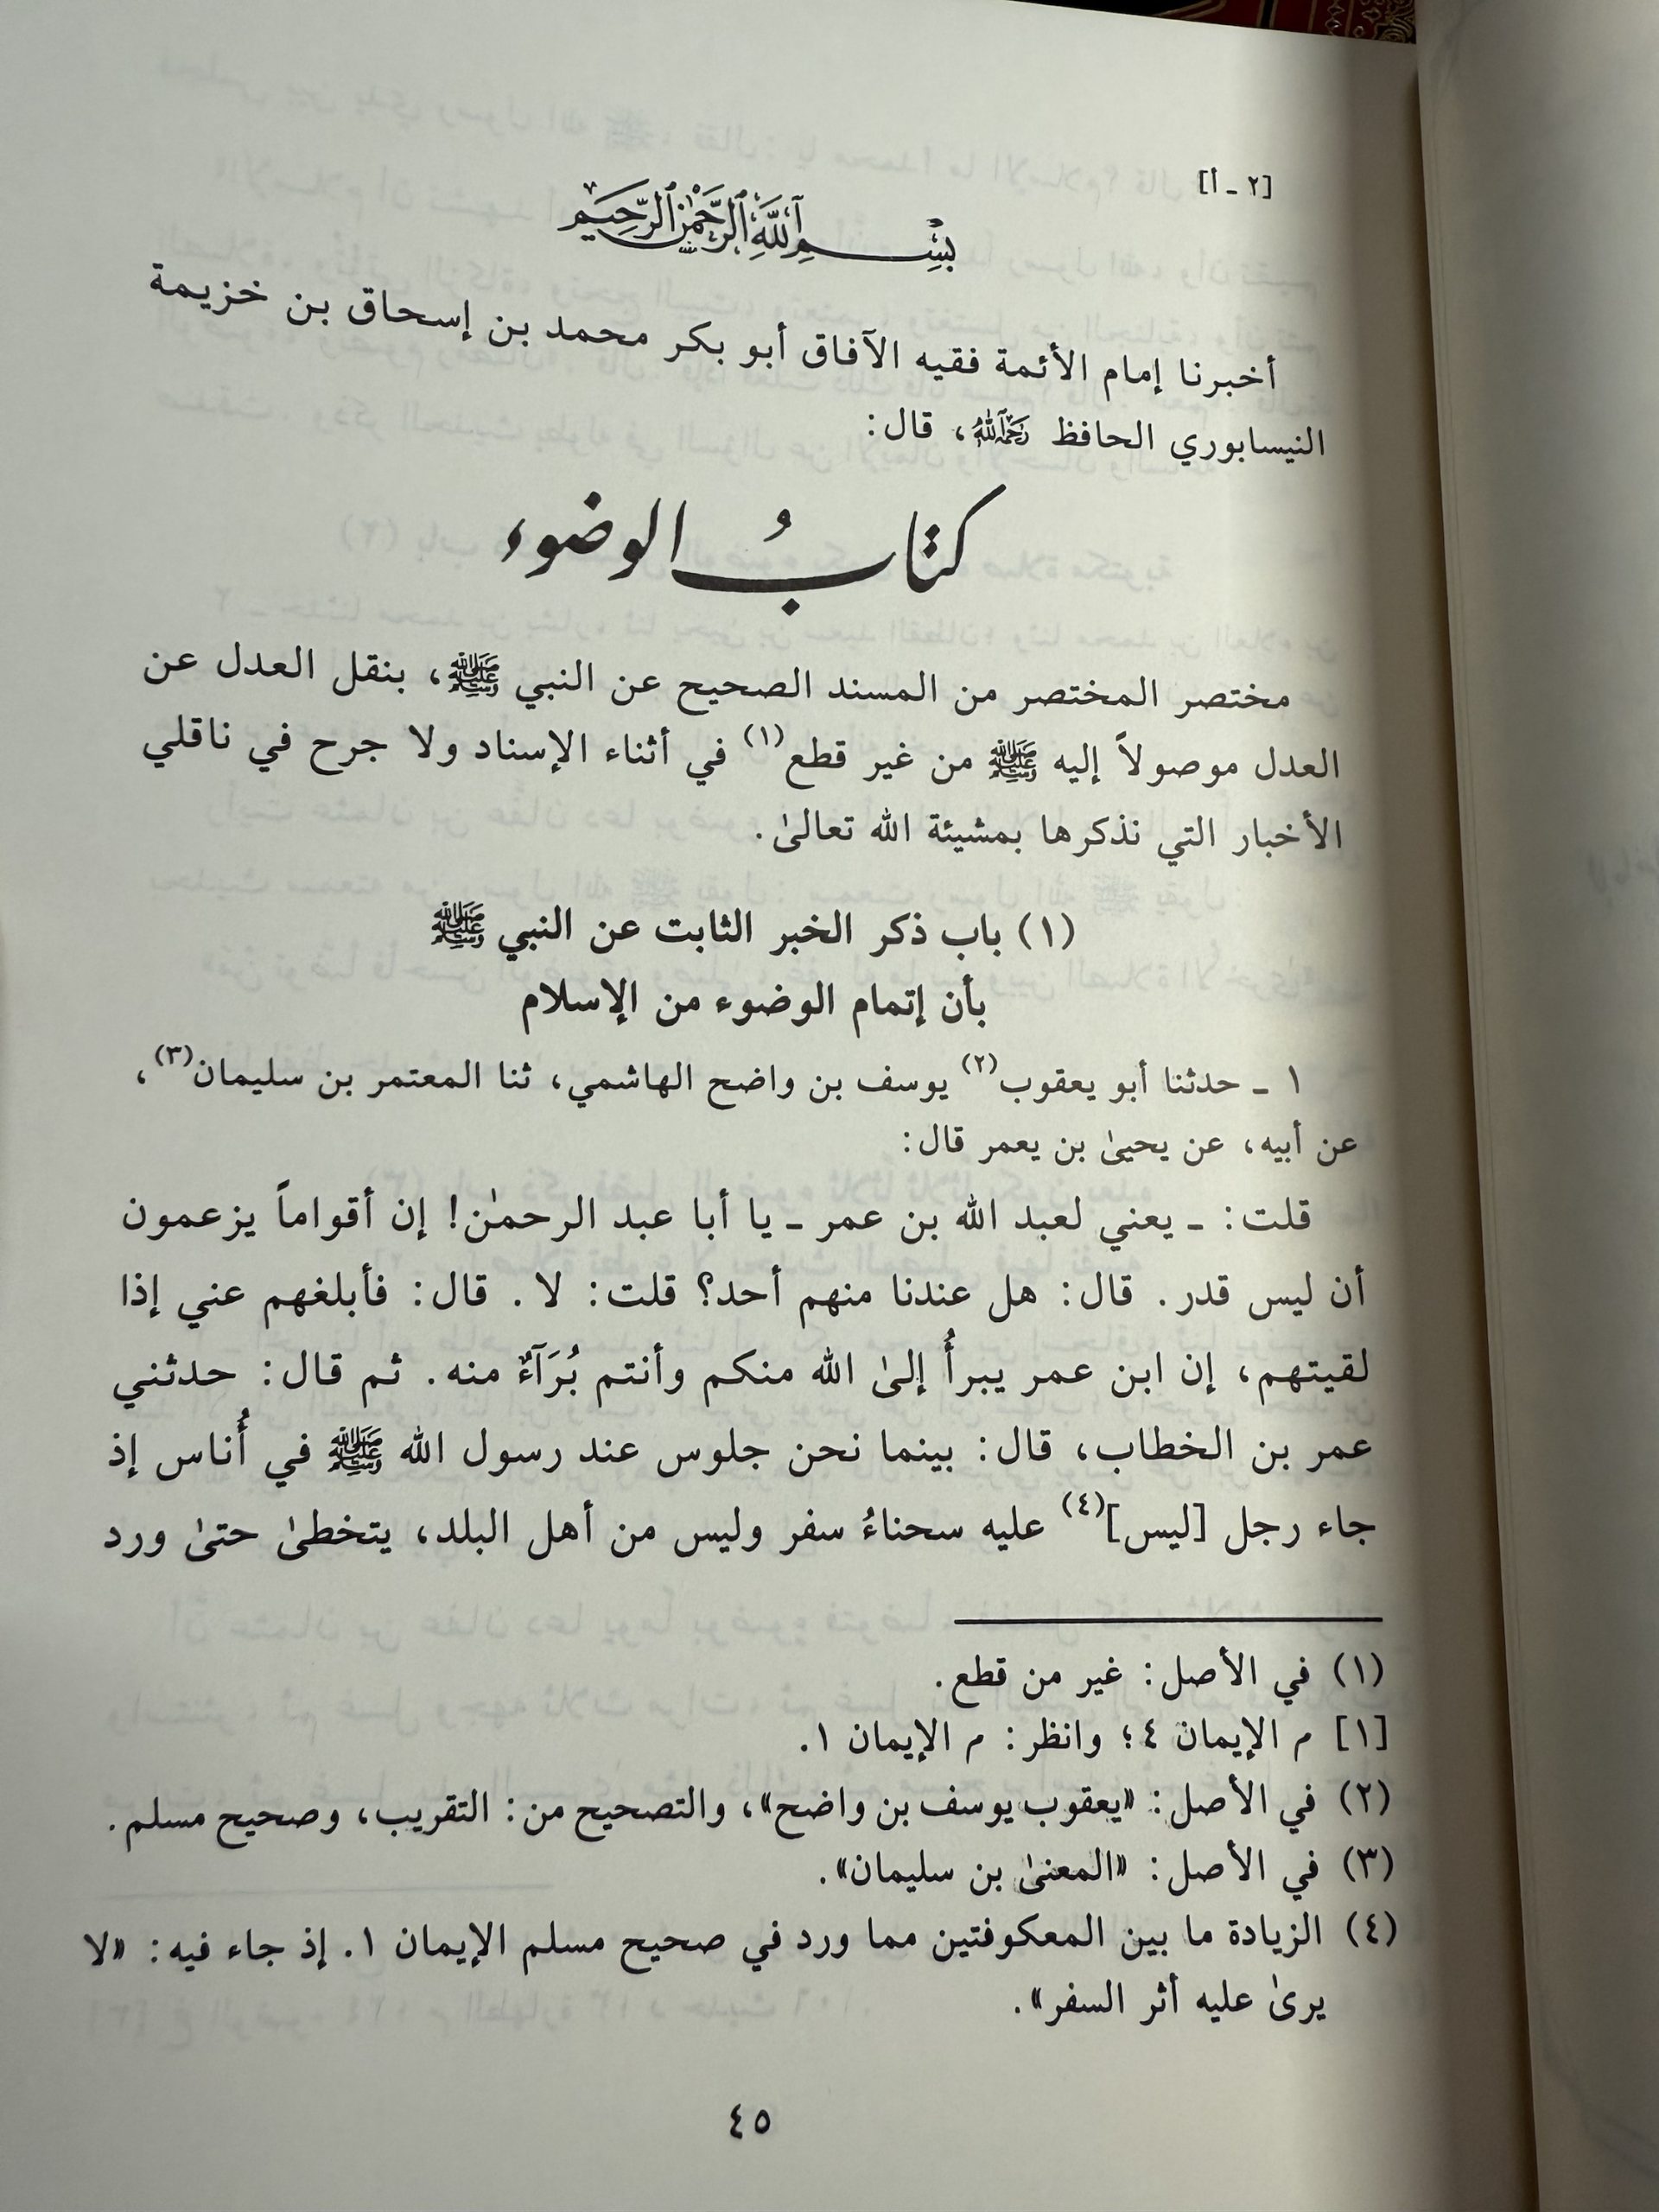 [٢ - أ]
بِسْمِ ٱللَّهِ ٱلرَّحْمَٰنِ ٱلرَّحِيمِ
أخبرنا إمام الأئمة فقيه الآفاق أبو بكر محمد بن إسحاق بن خزيمة
النيسابوري الحافظ رَحِمَهُ ٱللَّهُ، قال:
كتابُ الوضوء
مختصر المختصر من المسند الصحيح عن النبي ﷺ، بنقل العدل عن
العدل موصولاً إليه ﷺ من غير قطع(١) في أثناء الإسناد ولا جرح في ناقلي
الأخبار التي نذكرها بمشيئة الله تعالىٰ.
(١) باب ذكر الخبر الثابت عن النبي ﷺ
بأن إتمام الوضوء من الإسلام
١ ـ حدثنا أبو يعقوب(٢) يوسف بن واضح الهاشمي، ثنا المعتمر بن سليمان(٣)،
عن أبيه، عن يحيىٰ بن يعمر قال:
قلت: ـ يعني لعبد الله بن عمر ـ يا أبا عبد الرحمٰن! إن أقواماً يزعمون
أن ليس قدر. قال: هل عندنا منهم أحد؟ قلت: لا. قال: فأبلغهم عني إذا
لقيتهم، إن ابن عمر يبرأُ إلىٰ الله منكم وأنتم بُرَآءٌ منه. ثم قال: حدثني
عمر بن الخطاب، قال: بينما نحن جلوس عند رسول الله ﷺ في أُناس إذ
جاء رجل [ليس](٤) عليه سحناءُ سفر وليس من أهل البلد، يتخطىٰ حتىٰ ورد
(١) في الأصل: غير من قطع.
[١] م الإيمان ٤؛ وانظر: م الإيمان ١.
(٢) في الأصل: «يعقوب يوسف بن واضح»، والتصحيح من: التقريب، وصحيح مسلم.
(٣) في الأصل: «المعنىٰ بن سليمان».
(٤) الزيادة ما بين المعكوفتين مما ورد في صحيح مسلم الإيمان ١. إذ جاء فيه: «لا
يرىٰ عليه أثر السفر».
٤٥